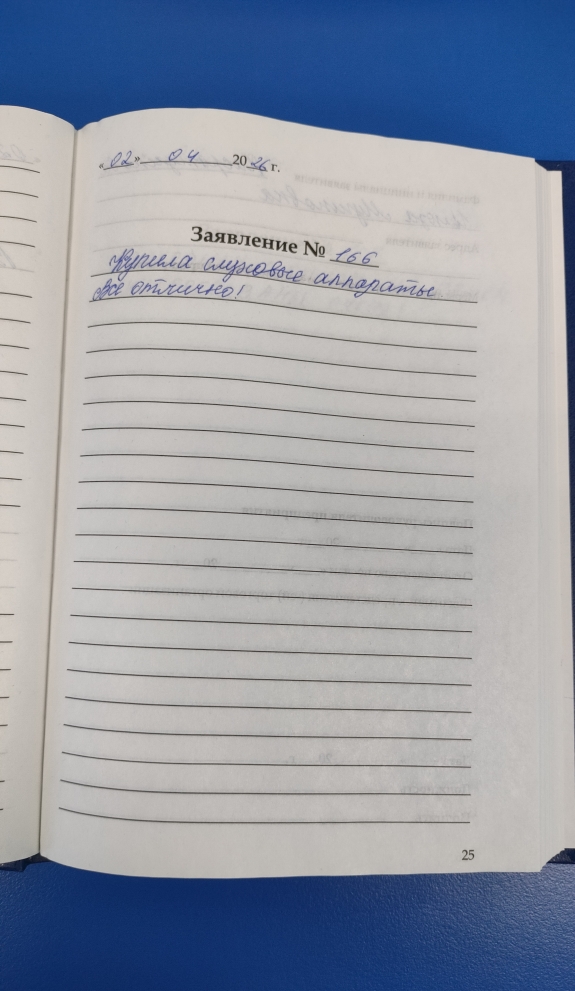 «02» 04 2026 г.
Заявление № 166
Купила слуховые аппараты
Все отлично!
25